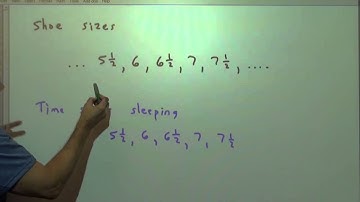 Shoe sizes
... 5 1/2, 6, 6 1/2, 7, 7 1/2, ....
Time sleeping
5 1/2, 6, 6 1/2, 7, 7 1/2